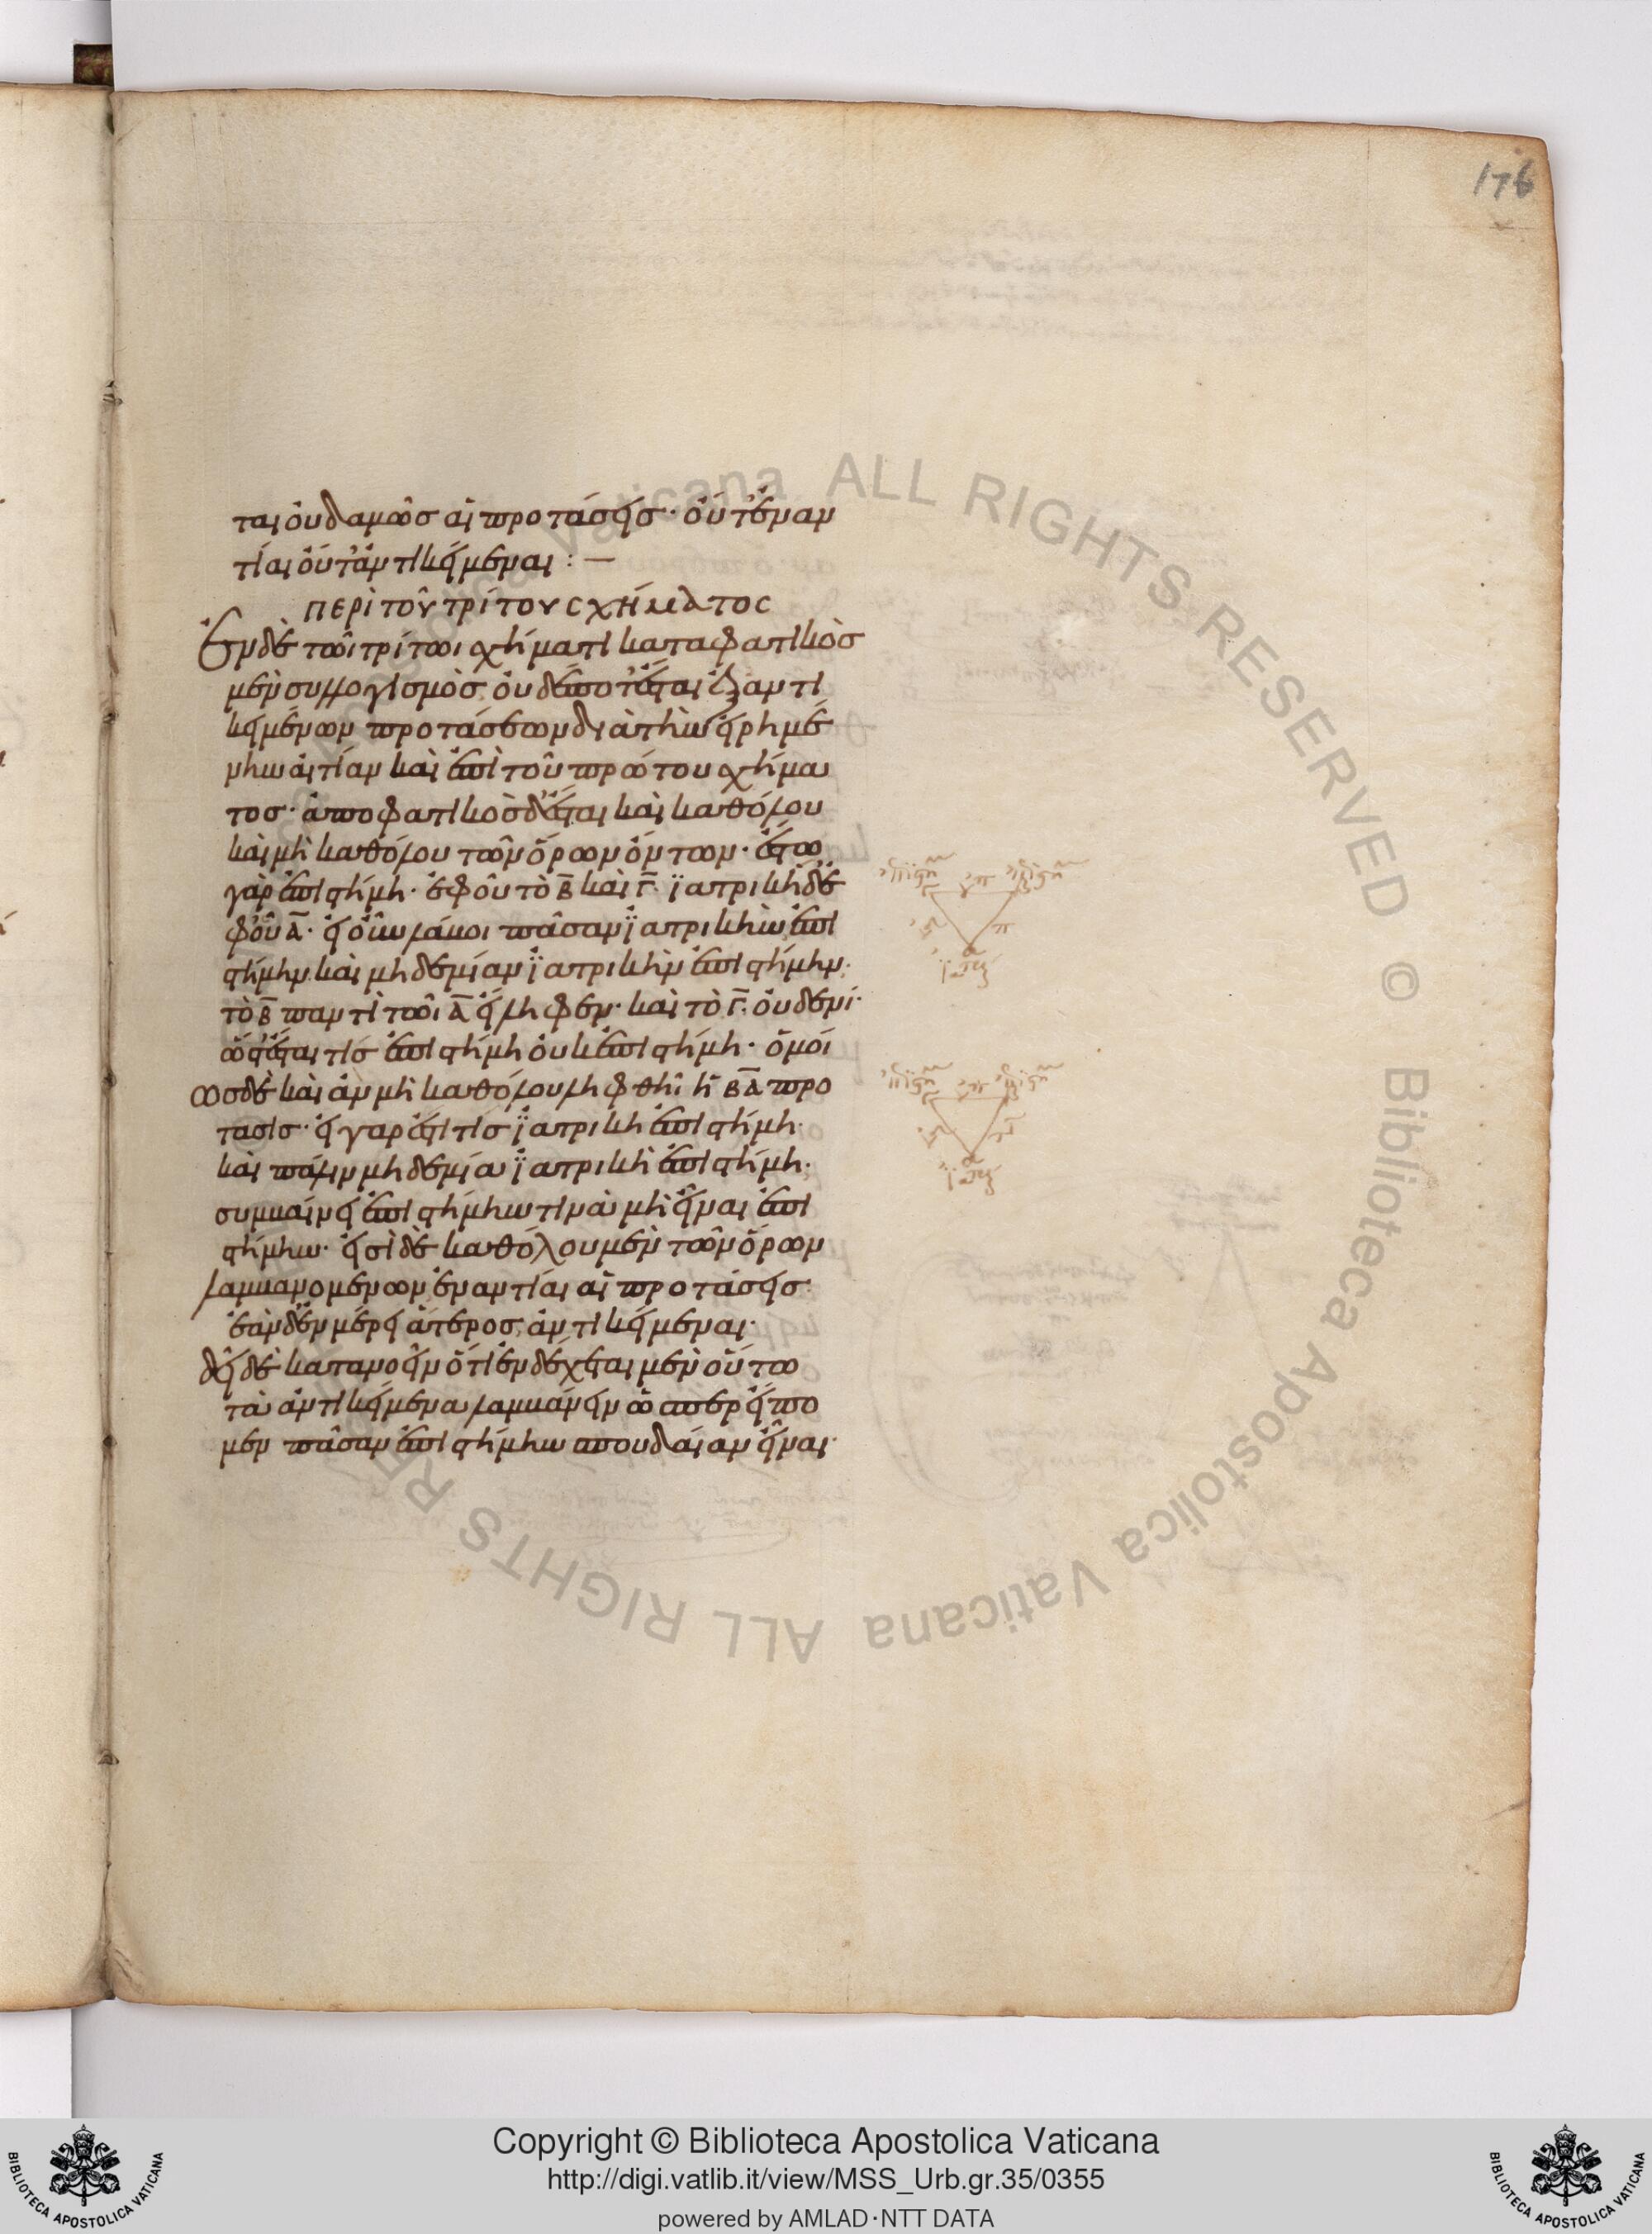 176
ται οὐδαμῶσ αἱ προτάσεισ· οὔτ' ἐναν
τίαι οὔτ' ἀντικείμεναι : —
ΠΕΡὶ ΤΟῦ ΤΡίΤΟΥ CΧΉΜΑΤΟC
Ἐν δὲ τῶι τρίτωι σχήματι καταφατικὸσ
μὲν συλλογισμὸσ οὐδέποτ' ἔσται ἐξ ἀντι
κειμένων προτάσεων διὰ τὴν εἰρημέ
νην αἰτίαν καὶ ἐπὶ τοῦ πρώτου σχήμα
τοσ· ἀποφατικὸσ δ' ἔσται καὶ καθόλου
καὶ μὴ καθόλου τῶν ὅρων ὄντων· ἔστω
γὰρ ἐπιστήμη· ἐφ οὗ τὸ Β̅ καὶ Γ̅· ϊατρικὴ δ' ἐ
φ' οὗ Α̅· εἰ οὖν λάβοι πᾶσαν ϊατρικὴν ἐπι
στήμην καὶ μηδεμίαν ϊατρικὴν ἐπιστήμην·
τὸ Β̅ παντὶ τῶι Α̅ εἴληφεν· καὶ τὸ Γ̅· οὐδενί·
ὥστ' ἔσται τίσ ἐπιστήμη οὐκ ἐπιστήμη· ὁμοί
ωσ δὲ καὶ ἂν μὴ καθόλου ληφθῆι ἡ Β̅Α̅ πρό
τασισ· εἰ γαρ ἐστί τίσ ϊατρικὴ ἐπιστήμη·
καὶ πάλιν μηδεμία ϊατρικὴ ἐπιστήμη·
συμβαίνει ἐπιστήμην τινὰ μὴ εἶναι ἐπι
στήμην· εἰσὶ δὲ καθόλου μὲν τῶν ὅρων
λαμβανομένων ἐναντίαι αἱ προτάσεισ·
ἐὰν δ' ἐν μέρει ἅτεροσ, ἀντικείμεναι·
δεῖ δὲ κατανοεῖν ὅτι ἐνδέχεται μὲν οὕτω
τὰ ἀντικείμενα λαμβάνειν ὥσπερ εἴπο
μεν πᾶσαν ἐπιστήμην σπουδαίαν εἶναι·
ALL RIGHTS RESERVED © Biblioteca Apostolica Vaticana
Copyright © Biblioteca Apostolica Vaticana
http://digi.vatlib.it/view/MSS_Urb.gr.35/0355
powered by AMLAD·NTT DATA
BIBLIOTECA APOSTOLICA VATICANA
BIBLIOTECA APOSTOLICA VATICANA